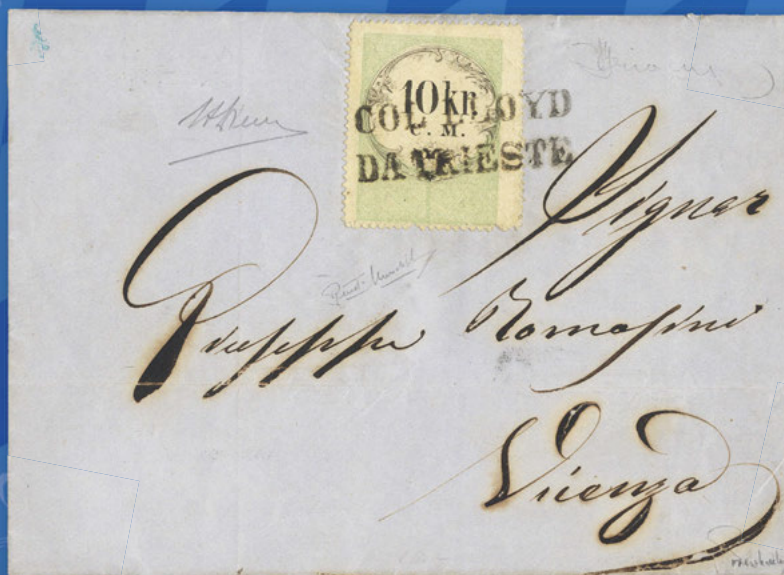 10 KR
C. M.
COL LLOYD
DA TRIESTE
Signor
Giuseppe Tomasini
Vicenza